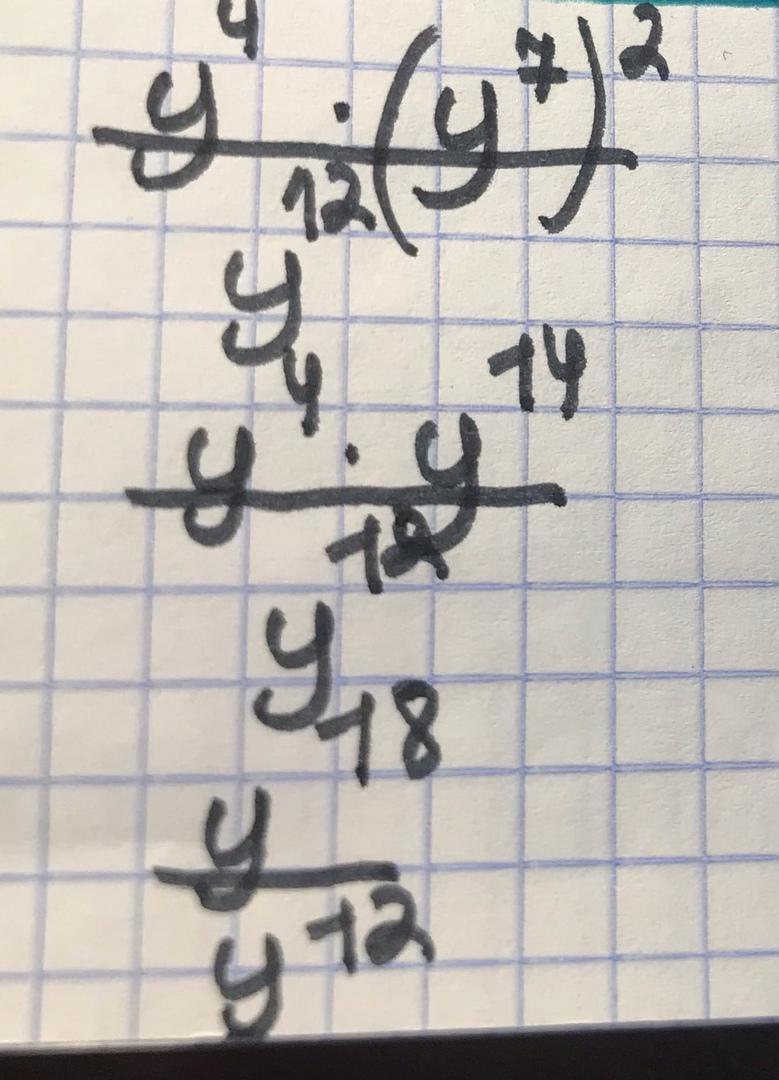 y⁴ · (y⁷)²
y¹²
y⁴ · y¹⁴
y¹²
y¹⁸
y¹²